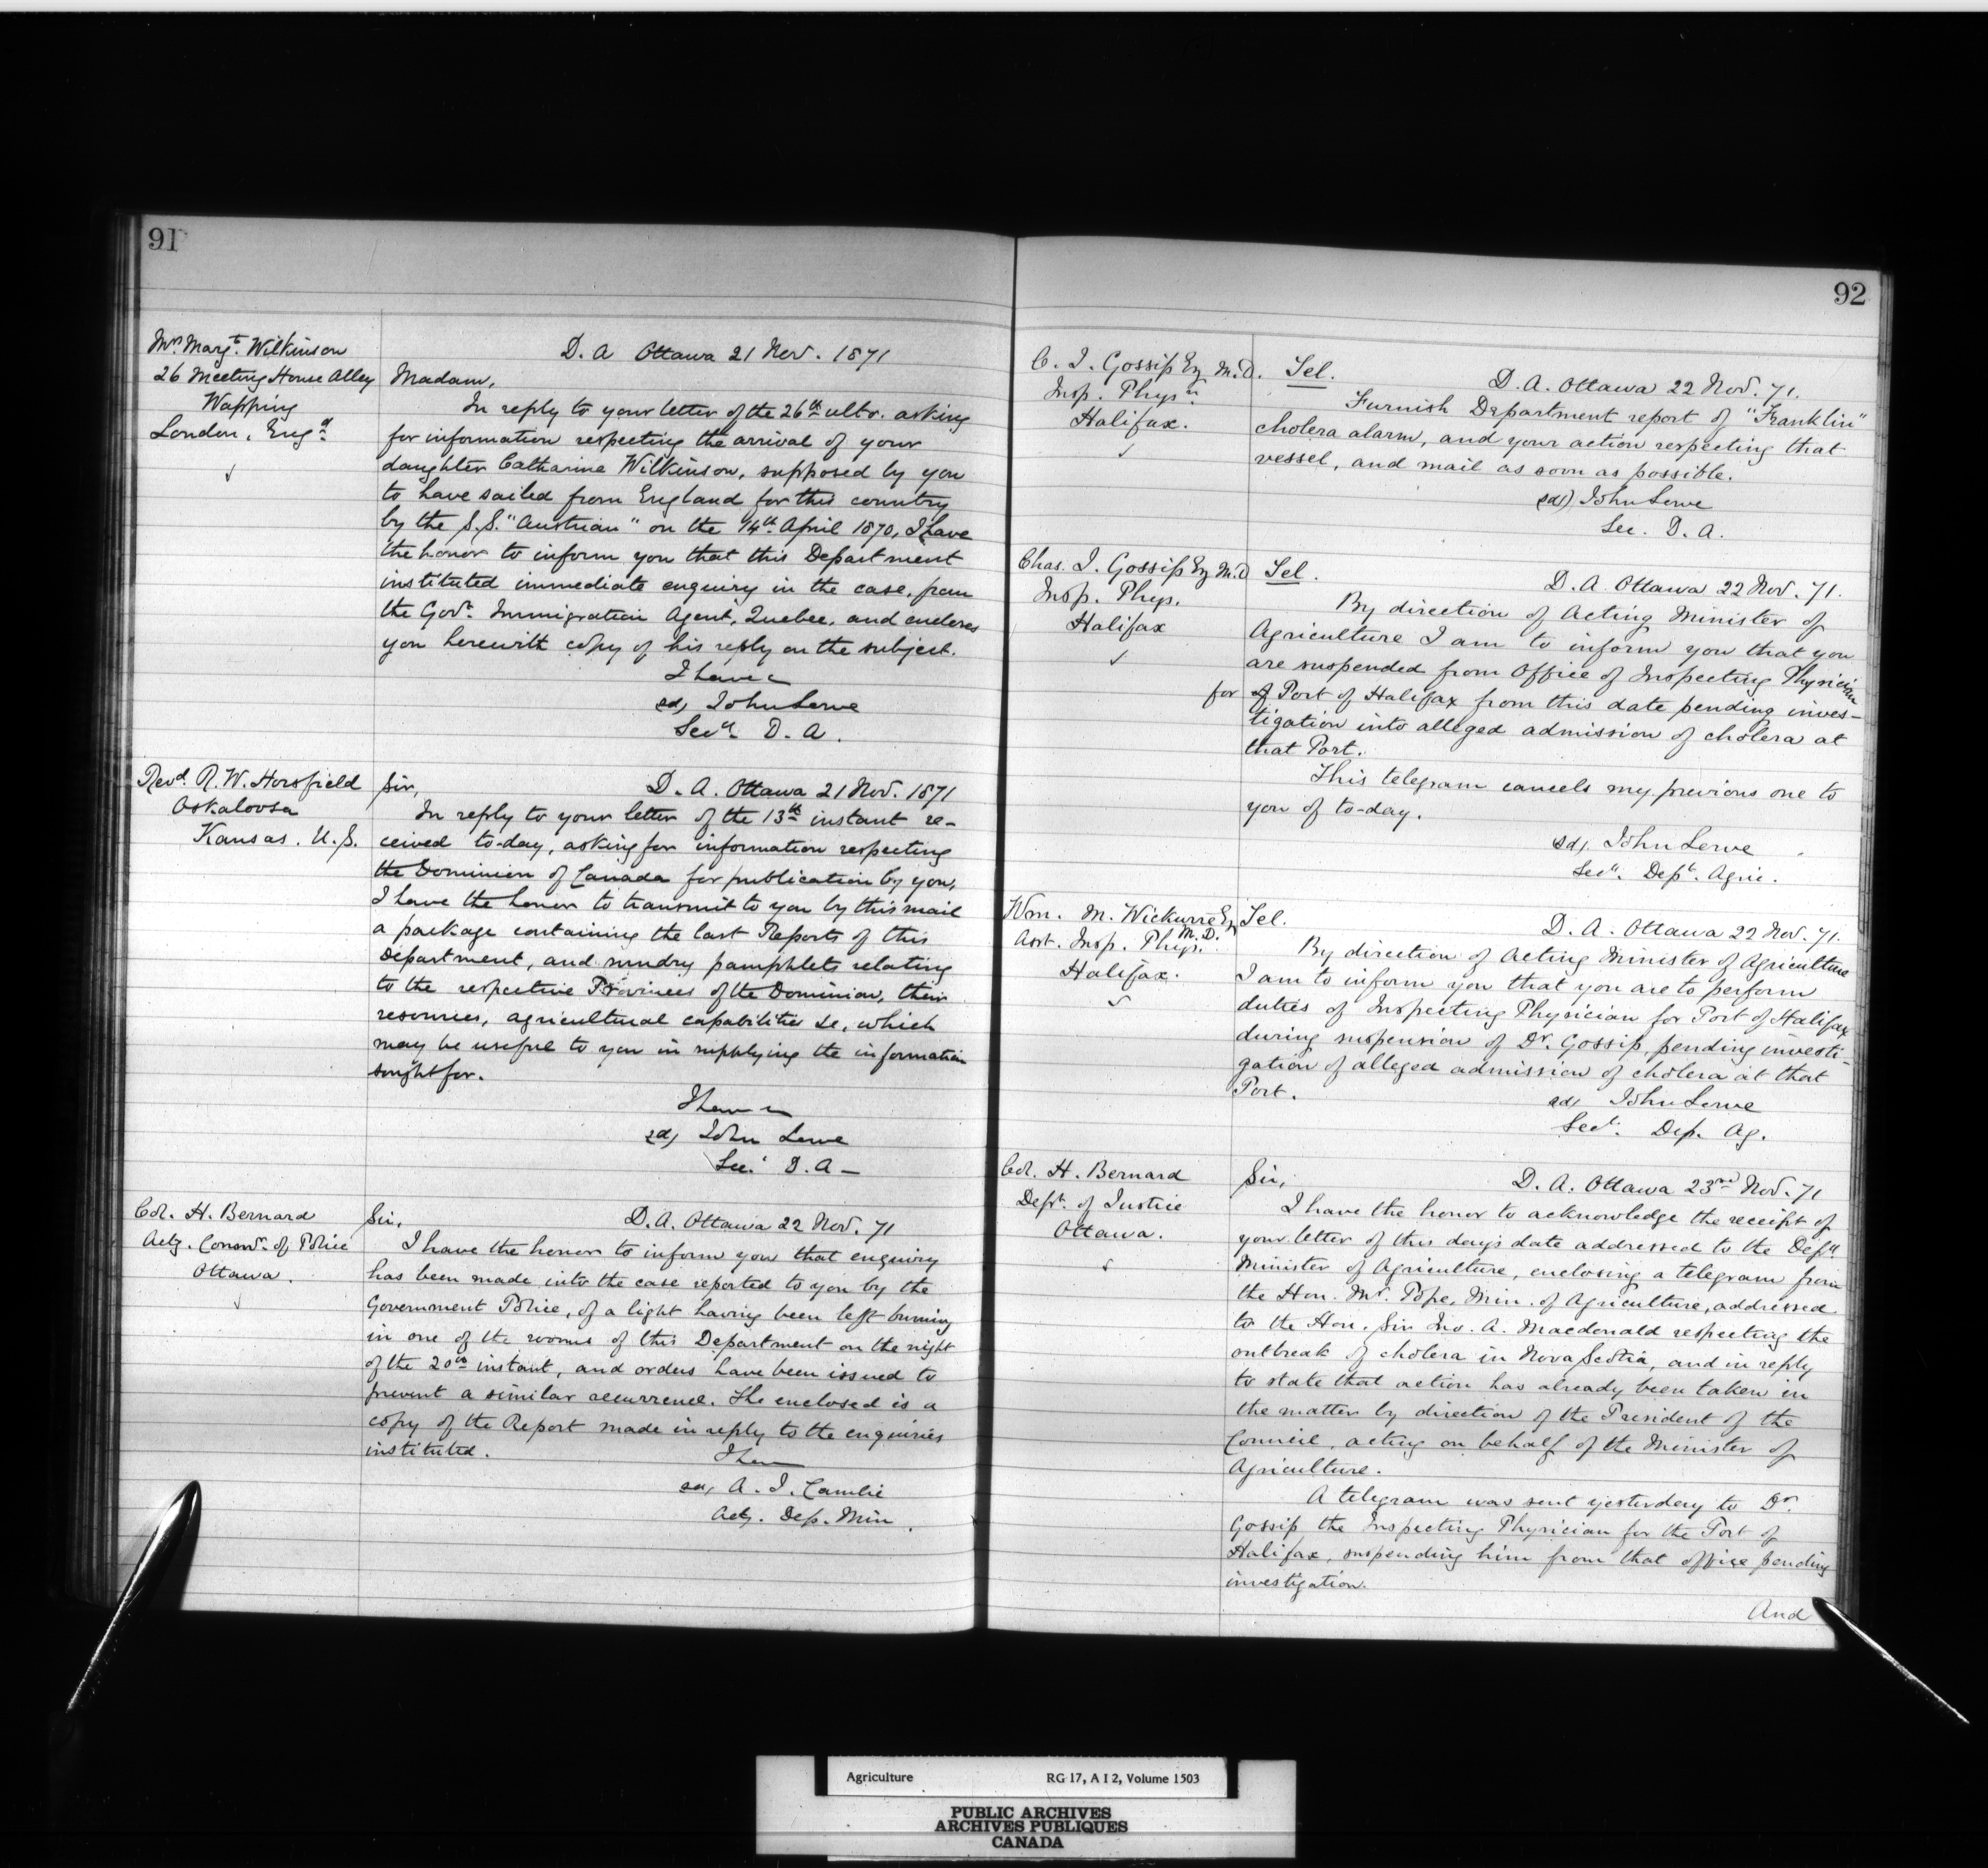 91
Mrs. Margt. Wilkinson
26 Meeting House Alley
Wapping
London, Engd.
D. A Ottawa 21 Nov. 1871
Madam,
In reply to your letter of the 26th ulto. asking
for information respecting the arrival of your
daughter Catharine Wilkinson, supposed by you
to have sailed from England for this country
by the S.S. "Austrian" on the 14th April 1870, I have
the honor to inform you that this Department
instituted immediate enquiry in the case, from
the Govt. Immigration Agent, Quebec, and encloses
you herewith copy of his reply on the subject.
I have &
sd, John Lowe
Secy. D. A.
Revd. R. W. Horsfield
Oskaloosa
Kansas. U.S.
Sir,
D. A. Ottawa 21 Nov. 1871
In reply to your letter of the 13th instant re-
ceived to-day, asking for information respecting
the Dominion of Canada for publication by you,
I have the honor to transmit to you by this mail
a package containing the last Reports of this
Department, and sundry pamphlets relating
to the respective Provinces of the Dominion, their
resources, agricultural capabilities &c, which
may be useful to you in supplying the information
sought for.
I have &
sd, John Lowe
Sec. D. A—
Col. H. Bernard
Actg. Commr. of Police
Ottawa.
Sir,
D. A. Ottawa 22 Nov. 71
I have the honor to inform you that enquiry
has been made into the case reported to you by the
Government Police, of a light having been left burning
in one of the rooms of this Department on the night
of the 20th instant, and orders have been issued to
prevent a similar recurrence. The enclosed is a
copy of the Report made in reply to the enquiries
instituted.
I have
sd, A. J. Cambie
Actg. Dep. Min.
92
C. J. Gossip Esq M.D.
Insp. Physn.
Halifax.
Tel.
D. A. Ottawa 22 Nov. 71.
Furnish Department report of "Franklin"
cholera alarm, and your action respecting that
vessel, and mail as soon as possible.
sd) John Lowe
Sec. D. A.
Chas. J. Gossip Esq M.D
Insp. Phys.
Halifax
Tel.
D. A. Ottawa 22 Nov. 71.
By direction of Acting Minister of
Agriculture I am to inform you that you
are suspended from Office of Inspecting Physician
for of Port of Halifax from this date pending inves-
tigation into alleged admission of cholera at
that Port.
This telegram cancels my previous one to
you of to-day.
sd, John Lowe
Secy. Dept. Agric.
Wm. M. Wickwire Esq
M. D.
Asst. Insp. Phys.
Halifax.
Tel.
D. A. Ottawa 22 Nov. 71.
By direction of Acting Minister of Agriculture
I am to inform you that you are to perform
duties of Inspecting Physician for Port of Halifax
during suspension of Dr. Gossip, pending investi-
gation of alleged admission of cholera at that
Port.
sd, John Lowe
Secy. Dep. Ag.
Col. H. Bernard
Dept. of Justice
Ottawa.
Sir,
D. A. Ottawa 23rd Nov. 71
I have the honor to acknowledge the receipt of
your letter of this day's date addressed to the Depy.
Minister of Agriculture, enclosing a telegram from
the Hon. Mr. Pope, Min. of Agriculture, addressed
to the Hon. Sir Jno. A. Macdonald respecting the
outbreak of cholera in Nova Scotia, and in reply
to state that action has already been taken in
the matter by direction of the President of the
Council, acting on behalf of the Minister of
Agriculture.
A telegram was sent yesterday to Dr.
Gossip, the Inspecting Physician for the Port of
Halifax, suspending him from that office pending
investigation.
And
Agriculture RG 17, A I 2, Volume 1503
PUBLIC ARCHIVES
ARCHIVES PUBLIQUES
CANADA